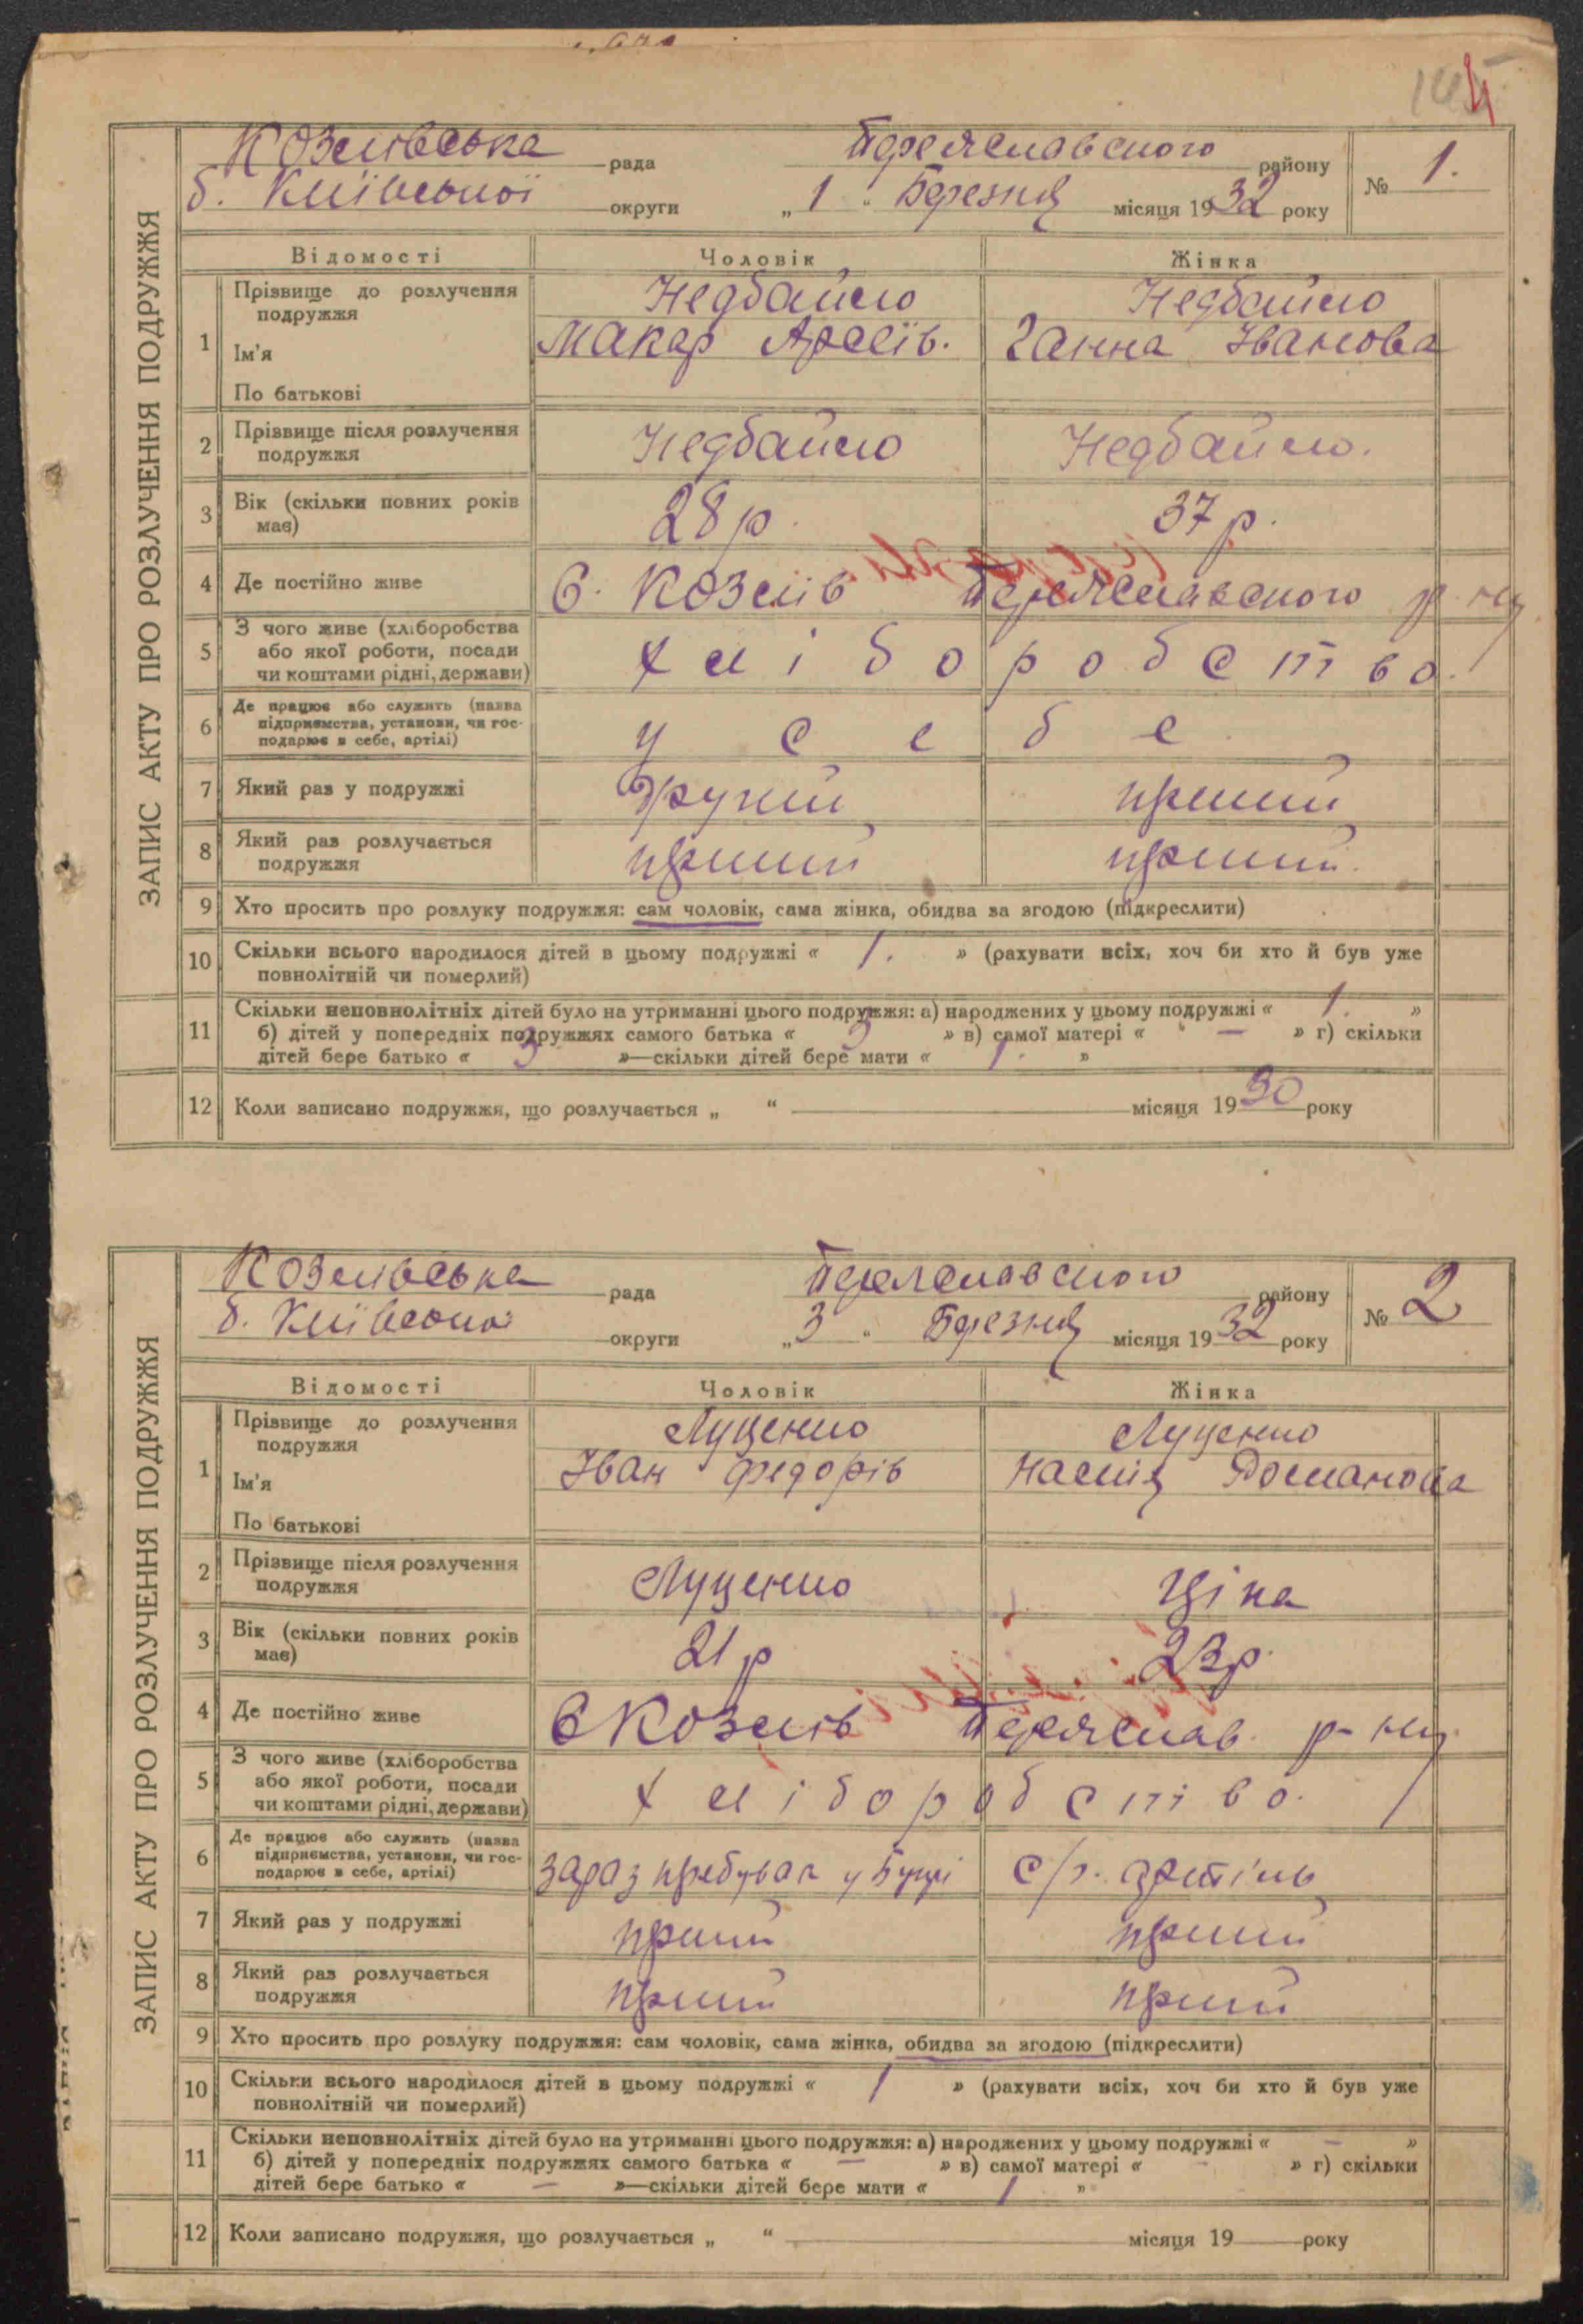 4
ЗАПИС АКТУ ПРО РОЗЛУЧЕННЯ ПОДРУЖЖЯ
Козлівська рада Переяславского району № 1.
б. Київської округи „ 1 “ Березня місяця 1932 року
Відомості Чоловік Жінка
1 Прізвище до розлучення подружжя Недбайло Недбайло
Ім'я Макар Ганна Іванова
По батькові
2 Прізвище після розлучення подружжя Недбайло Недбайло.
3 Вік (скільки повних років має) 28 р. 37 р.
4 Де постійно живе С. Козлів Переяславского р-ну
5 З чого живе (хліборобства або якої роботи, посади чи коштами рідні, держави) хліборобство.
6 Де працює або служить (назва підприємства, установи, чи господарює в себе, артілі) у себе
7 Який раз у подружжі другий перший
8 Який раз розлучається подружжя перший перший
9 Хто просить про розлуку подружжя: сам чоловік, сама жінка, обидва за згодою (підкреслити)
10 Скільки всього народилося дітей в цьому подружжі « 1. » (рахувати всіх, хоч би хто й був уже
повнолітній чи померлий)
11 Скільки неповнолітніх дітей було на утриманні цього подружжя: а) народжених у цьому подружжі « 1. »
б) дітей у попередніх подружжях самого батька « 3 » в) самої матері « — » г) скільки
дітей бере батько « 3 »—скільки дітей бере мати « 1. »
12 Коли записано подружжя, що розлучається „ “ місяця 1930 року
ЗАПИС АКТУ ПРО РОЗЛУЧЕННЯ ПОДРУЖЖЯ
Козлівська рада Переяславского району № 2
б. Київської округи „ 3 “ Березня місяця 1932 року
Відомості Чоловік Жінка
1 Прізвище до розлучення подружжя Луценко Луценко
Ім'я Іван Федорів Настя Романова
По батькові
2 Прізвище після розлучення подружжя Луценко Ціка
3 Вік (скільки повних років має) 21 р 23 р.
4 Де постійно живе С Козлів Переяслав. р-ну
5 З чого живе (хліборобства або якої роботи, посади чи коштами рідні, держави) хліборобство.
6 Де працює або служить (назва підприємства, установи, чи господарює в себе, артілі) зараз у с/г. артіль
7 Який раз у подружжі перший перший
8 Який раз розлучається подружжя перший перший
9 Хто просить про розлуку подружжя: сам чоловік, сама жінка, обидва за згодою (підкреслити)
10 Скільки всього народилося дітей в цьому подружжі « 1 » (рахувати всіх, хоч би хто й був уже
повнолітній чи померлий)
11 Скільки неповнолітніх дітей було на утриманні цього подружжя: а) народжених у цьому подружжі « — »
б) дітей у попередніх подружжях самого батька « — » в) самої матері « — » г) скільки
дітей бере батько « — »—скільки дітей бере мати « 1 »
12 Коли записано подружжя, що розлучається „ “ місяця 19 року